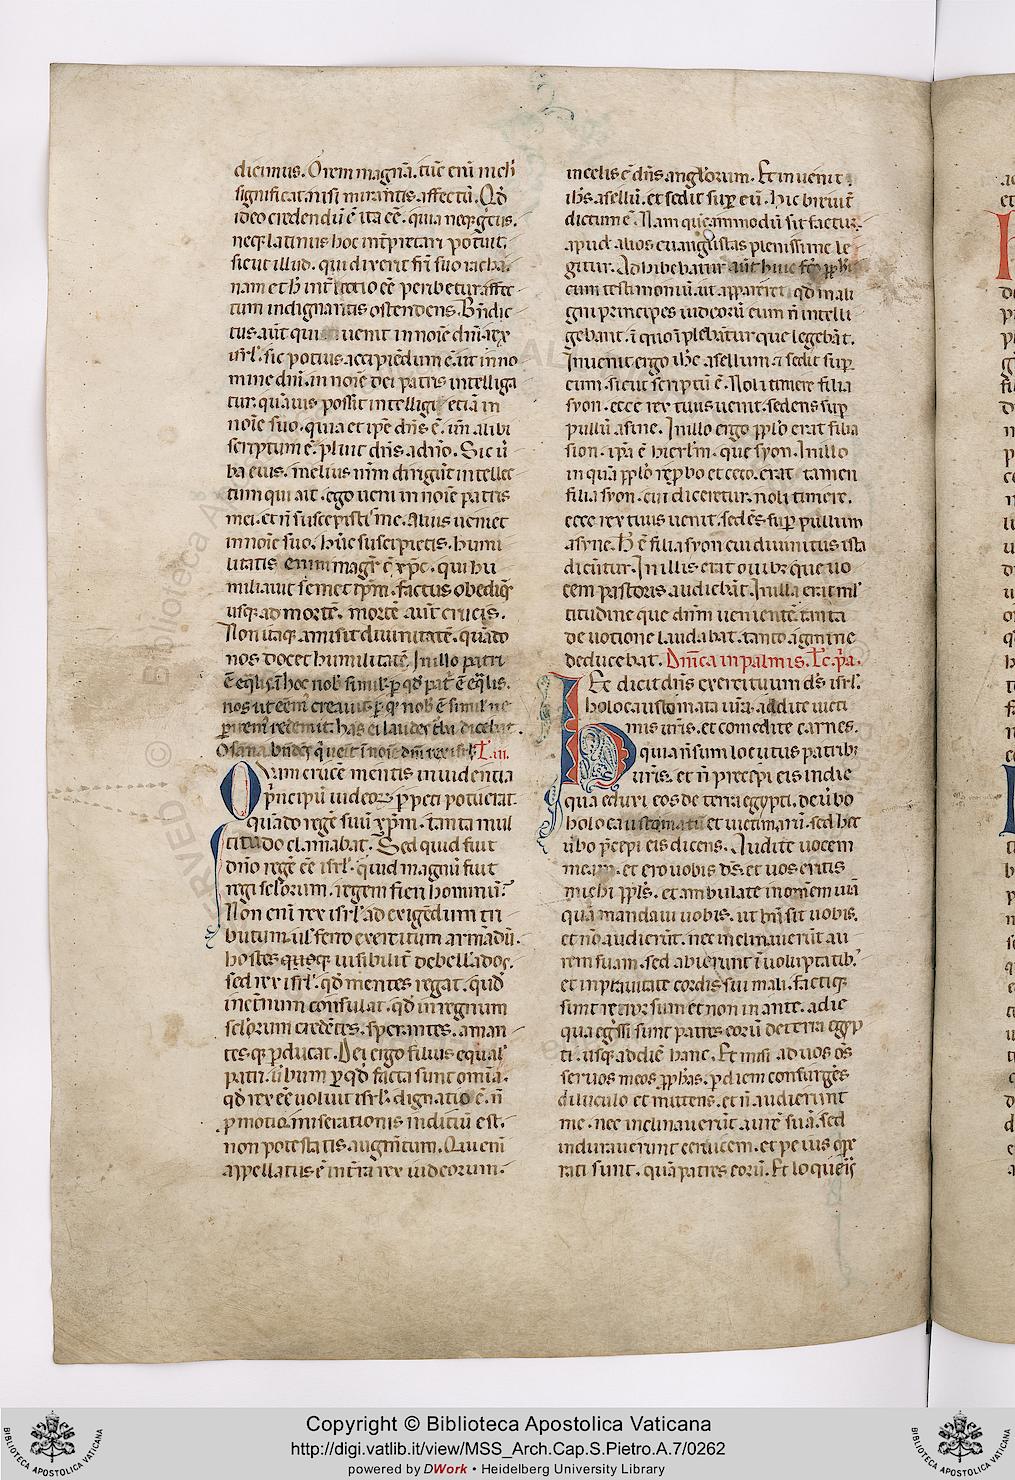 dicimus. O rem magnā. tūc enī nich̄
significat. nisi mirantis affectū. Qđ
ideo credendū ē ita eē. quia neq; grecus.
neq; latinus hoc int̄pretari potuit.
sicut illud. qui dixerit fr̄i suo racha.
nam et h̄ int̄iectio eē peribetur affec
tum indignantis ostendens. Bn̄dic
tus. aūt qui uenit in noīe dn̄i. rex
isrl̄. sic potius accipiēdum ē. ut in no
mine dn̄i. in noīe dei patris intelliga
tur. quāuis possit intelligi etiā in
noīe suo. quia et ip̄e dn̄s ē. un̄ alibi
scriptum ē. pluit dn̄s. a dn̄o. Sic ū
ba eius. melius nr̄m dirigūt intellec
tum qui ait. ego ueni in noīe patris
mei. et n̄ suscepisti me. Alius ueniet
in noīe suo. hūc suscipietis. humi
litatis enim magr̄ ē xp̄c. qui hu
miliauit semet ip̄m. factus obediēs
usq; ad mortē. mortē aūt crucis.
Non itaq; amisit diuinitatē. quādo
nos docet humilitatē. In illo patri
ē eq̄lis. ī hoc nob̄ similis. p qđ pat̄ ē eq̄lis.
nos ut eēm̄ creauit. p qđ nob̄ ē simil̄ ne
p̄irem̄ redemit. has ei laudes t̄ba dicebat
Osana. bn̄dc̄s q̄ uenit ī noīe dn̄i rex isrl̄. Lc̄. iii.
Quam crucē mentis inuidentia
p̄ncipū iudeoꝝ p̄peti potuerat.
quādo regē suū xp̄m. tanta mul
titudo clamabat. Sed quid fuit
dn̄o regē eē isrl̄. quid magnū fuit
regi seculorum. regem fieri hominū?
Non enī rex isrl̄ ad exigēdum tri
butum. ul̄ ferro exercitum armādū.
hostesq; uisibilit̄ debellādos.
sed rex isrl̄. qđ mentes regat. quođ
inet̄num consulat. qđ in regnum
celorum credētes. sperantes. aman
tesq; p̄ducat. Dei ergo filius equal̄
patri. ūbum p̄ qđ facta sunt omīa.
qđ rex eē uoluit isrl̄. dignatio ē. n̄
p̄motio. miserationis indiciū est.
non potestatis. augm̄tum. Qui enī
appellatus ē int̄ra rex iudeorum.
in celis ē dn̄s anglorum. Et inuenit
ih̄s. asellū. et sedit sup̄ eū. hic breuit̄
dictum ē. Nam quēammodū sit factū.
apud alios euangelistas plenissime le
gitur. Adhibebatur aūt huic fc̄o pph̄i
cum testimoniū. ut appareret. qđ mali
gni principes iudeorū eum n̄ intelli
gebant. ī quo īplebātur que legebāt.
Inuenit ergo ih̄c asellum. ⁊ sedit sup̄
eum. sicut scriptū ē. Noli timere filia
syon. ecce rex tuus uenit. sedens sup̄
pullū asine. In illo ergo pplo erat filia
sion. ip̄a ē hierl̄m. que syon. In illo
inquā pplo reprobo et ceco. erat tamen
filia syon. cui diceretur. noli timere.
ecce rex tuus uenit. sedēs sup̄ pullum
asyne. H̄ ē filia syon cui diuinitus ista
dicūtur. In illis erat ouibꝫ que uo
cem pastoris audiebāt. In illa erat ml̄
titudine que dn̄m uenientē tanta
deuotione laudabat. tanto agmine
deducebat. Dn̄ica in palmis. Lc̄. p̄a.
Hec dicit dn̄s exercituum ds̄ isrl̄.
holocaustomata ur̄a. addite uicti
mis ur̄is. et comedite carnes.
quia n̄ sum locutus patribꝫ
uris. et n̄ precepi eis in die
qua eduxi eos de terra egypti. de ūbo
holocaustomatū et uictimarū. sed hec
ūbo p̄cepi eis dicens. Audite uocem
meam. et ero uobis ds̄. et uos eritis
michi ppls̄. et ambulate in omnem uiā
quā mandaui uobis. ut bn̄ sit uobis.
et nō audierūt. nec inclinauerūt au
rem suam. sed abierunt ī uoluptatib;
et in prauitate cordis sui mali. factiq;
sunt retrorsum et non in ante. a die
qua egssi sunt patres eorū de terra egyp
ti. usq; ad diē hanc. Et misi ad uos oēs
seruos meos pphas. p̄ diem consurgēs
diluculo et mittens. et n̄ audierunt
me. nec inclinauerūt aurē suā. sed
indurauerunt ceruicem. et peius ope
rati sunt. quā patres eorū. Et loqueris
Copyright © Biblioteca Apostolica Vaticana
http://digi.vatlib.it/view/MSS_Arch.Cap.S.Pietro.A.7/0262
powered by DWork • Heidelberg University Library